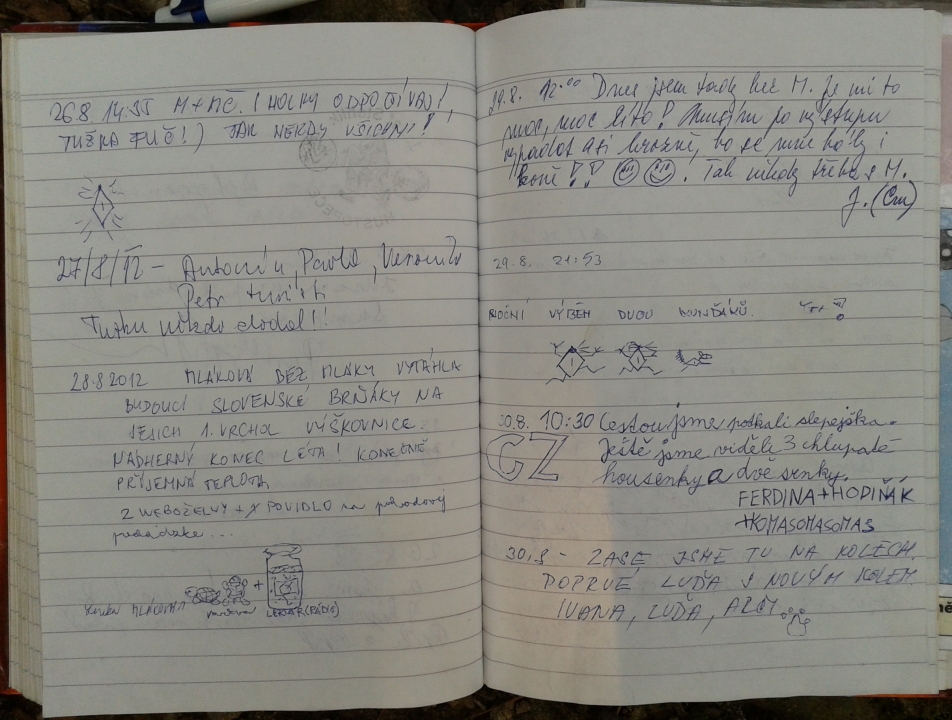 26.8. 14:55 M+MČ. (HOLKY ODPOČÍVAJÍ,
TUŽKA FUČ!) TAK NĚKDY VŠICHNI!
27/8/12 – Antonín, Pavla, Veronika
Petr turisti
Tužku někdo dodal!!
28.8.2012 MLÁKOVÁ BEZ MLÁKY VYTÁHLA
BUDOUCÍ SLOVENSKÉ BRŇÁKY NA
JEJICH 1. VRCHOL VÝŠKOVNICE.
NÁDHERNÝ KONEC LÉTA! KONEČNĚ
PŘÍJEMNÁ TEPLOTA
2 + POVIDLO na
MLÁKOVÁ + LEKVÁR
29.8. 12:00 Dnes jsem tady bez M. Je mi to
moc, moc líto! Musím po výstupu
vypadat asi hrozně, bo se mne bojí i
koně!! Tak někdy třeba s M.
J. (Cm)
29.8. 21:53
NOČNÍ VÝBĚH DVOU
30.8. 10:30 Cestou jsme potkali slepejška.
CZ Ještě jsme viděli 3 chlupaté
housenky a dvě srnky.
FERDINA+HODIŇÁK
+KOMASOMASOMAS
30.8 – ZASE JSME TU NA KOLECH.
POPRVÉ LUĎA S NOVÝM KOLEM
IVANA, LUĎA,